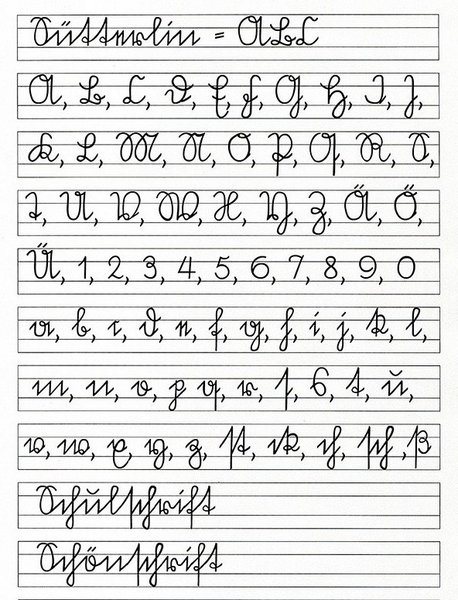 Sütterlin = ABC
A, B, C, D, E, F, G, H, I, J,
K, L, M, N, O, P, Q, R, S,
T, U, V, W, X, Y, Z, Ä, Ö,
Ü, 1, 2, 3, 4, 5, 6, 7, 8, 9, 0
a, b, c, d, e, f, g, h, i, j, k, l,
m, n, o, p, q, r, s, s, t, u,
v, w, x, y, z, st, ck, ch, sch, ß
Schulschrift
Schönschrift